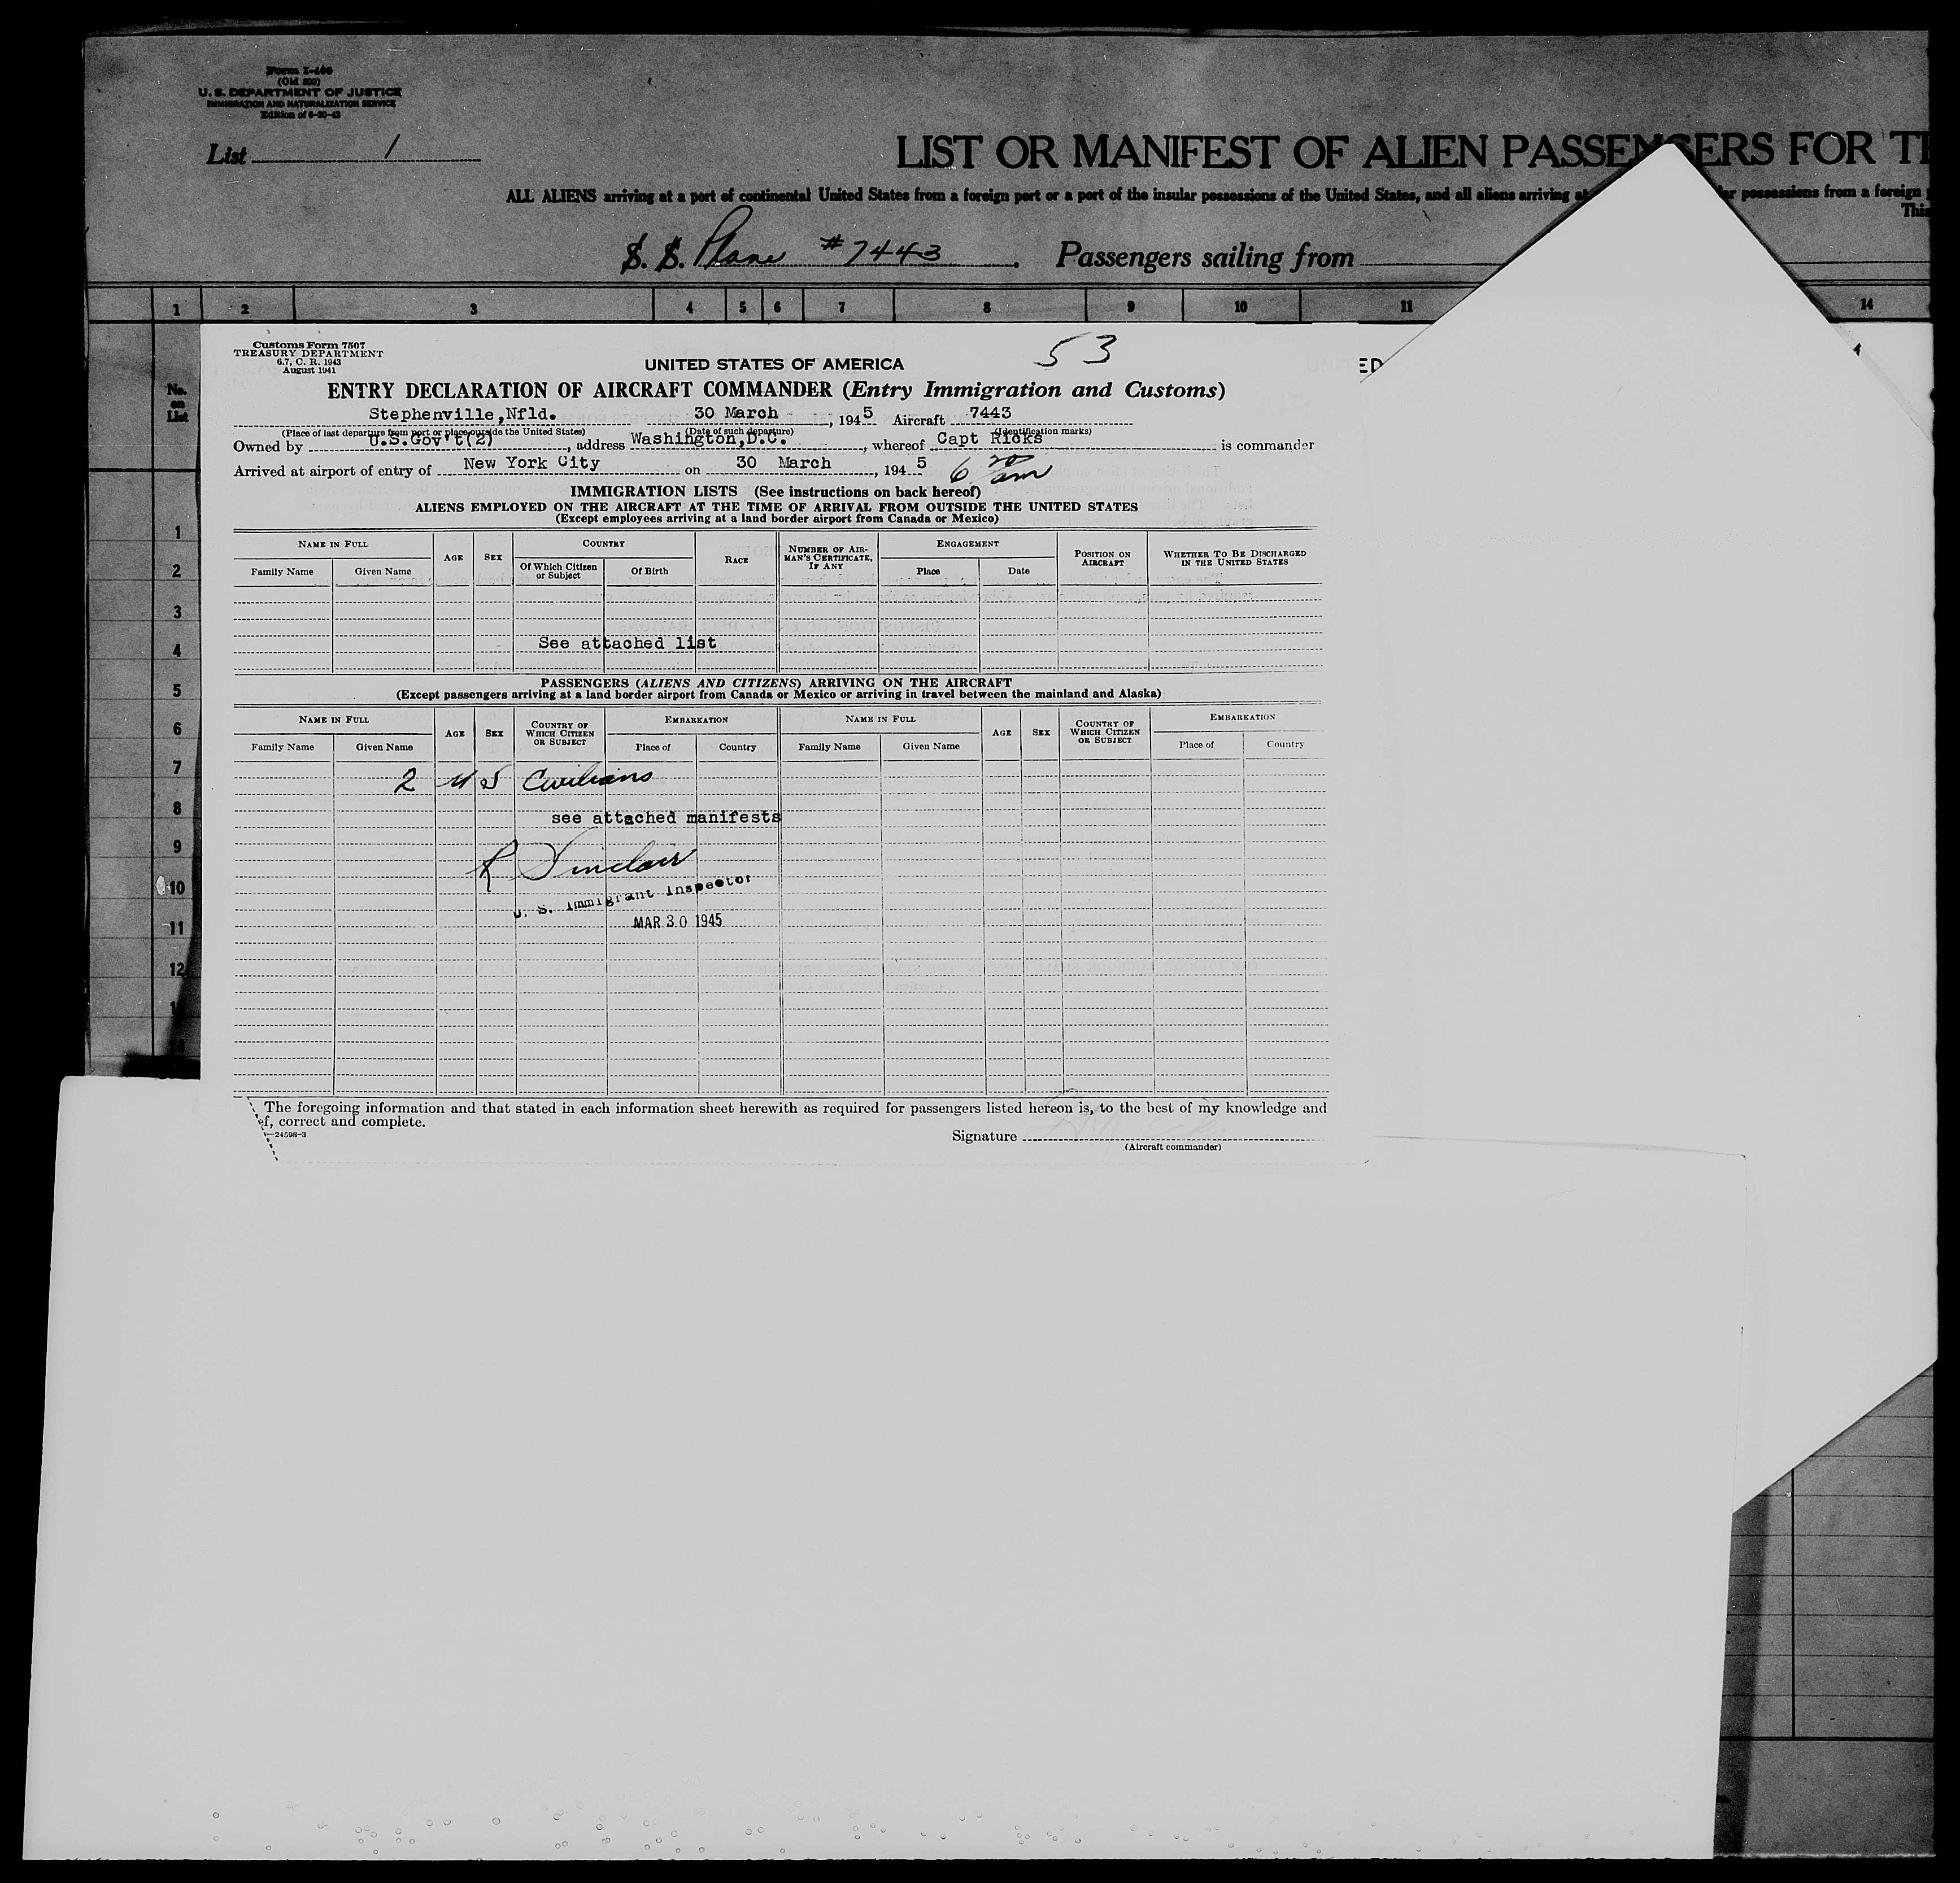 Form I-466
(Old 500)
U. S. DEPARTMENT OF JUSTICE
IMMIGRATION AND NATURALIZATION SERVICE
Edition of 6-20-43
List 1
LIST OR MANIFEST OF ALIEN PASSENGERS FOR TH
ALL ALIENS arriving at a port of continental United States from a foreign port or a port of the insular possessions of the United States, and all aliens arriving at possessions from a foreign
This
S. S. Plane #7443. Passengers sailing from
1 2 3 4 5 6 7 8 9 10 11 14
No. on List
1
2
3
4
5
6
7
8
9
10
11
12
Customs Form 7507
TREASURY DEPARTMENT
6.7, C. R. 1943
August 1941
53
UNITED STATES OF AMERICA
ENTRY DECLARATION OF AIRCRAFT COMMANDER (Entry Immigration and Customs)
Stephenville,Nfld. 30 March, 1945 Aircraft 7443
(Place of last departure from port or place outside the United States) (Date of such departure) (Identification marks)
Owned by U.S.Gov't(2), address Washington,D.C., whereof Capt Ricks is commander
Arrived at airport of entry of New York City on 30 March, 1945 6 20 am
IMMIGRATION LISTS (See instructions on back hereof)
ALIENS EMPLOYED ON THE AIRCRAFT AT THE TIME OF ARRIVAL FROM OUTSIDE THE UNITED STATES
(Except employees arriving at a land border airport from Canada or Mexico)
NAME IN FULL AGE SEX COUNTRY RACE NUMBER OF AIRMAN'S CERTIFICATE, IF ANY ENGAGEMENT POSITION ON AIRCRAFT WHETHER TO BE DISCHARGED IN THE UNITED STATES
Family Name Given Name Of Which Citizen or Subject Of Birth Place Date
See attached list
PASSENGERS (ALIENS AND CITIZENS) ARRIVING ON THE AIRCRAFT
(Except passengers arriving at a land border airport from Canada or Mexico or arriving in travel between the mainland and Alaska)
NAME IN FULL AGE SEX COUNTRY OF WHICH CITIZEN OR SUBJECT EMBARKATION NAME IN FULL AGE SEX COUNTRY OF WHICH CITIZEN OR SUBJECT EMBARKATION
Family Name Given Name Place of Country Family Name Given Name Place of Country
2 US Civilians
see attached manifests
R Sinclair
U. S. Immigrant Inspector
MAR 30 1945
The foregoing information and that stated in each information sheet herewith as required for passengers listed hereon is, to the best of my knowledge and
ef, correct and complete.
24598-3
Signature
(Aircraft commander)